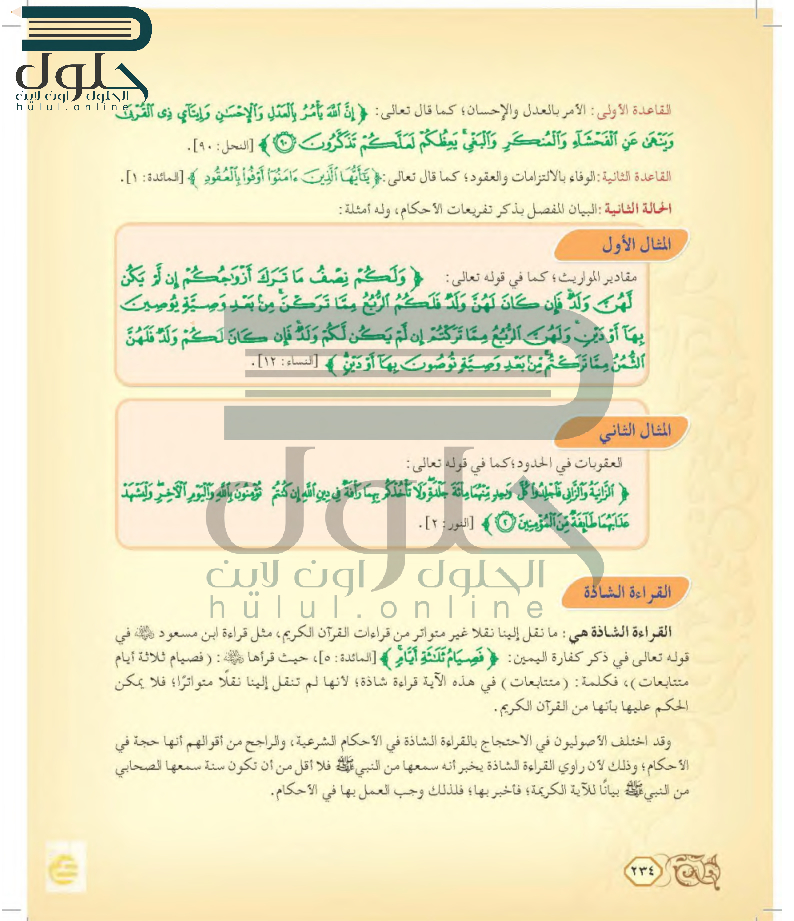 حلول
الحلول اون لاين
hulul.online
القاعدة الأولى: الأمر بالعدل والإحسان؛ كما قال تعالى: ﴿ إِنَّ اللَّهَ يَأْمُرُ بِالْعَدْلِ وَالْإِحْسَانِ وَإِيتَاءِ ذِي الْقُرْبَى
وَيَنْهَى عَنِ الْفَحْشَاءِ وَالْمُنْكَرِ وَالْبَغْيِ يَعِظُكُمْ لَعَلَّكُمْ تَذَكَّرُونَ ٩٠ ﴾ [النحل: ٩٠].
القاعدة الثانية: الوفاء بالالتزامات والعقود؛ كما قال تعالى: ﴿ يَا أَيُّهَا الَّذِينَ ءَامَنُوا أَوْفُوا بِالْعُقُودِ ﴾ [المائدة: ١].
الحالة الثانية: البيان المفصل بذكر تفريعات الأحكام، وله أمثلة:
المثال الأول
مقادير المواريث؛ كما في قوله تعالى: ﴿ وَلَكُمْ نِصْفُ مَا تَرَكَ أَزْوَاجُكُمْ إِن لَّمْ يَكُن
لَّهُنَّ وَلَدٌ فَإِن كَانَ لَهُنَّ وَلَدٌ فَلَكُمُ الرُّبُعُ مِمَّا تَرَكْنَ مِن بَعْدِ وَصِيَّةٍ يُوصِينَ
بِهَا أَوْ دَيْنٍ وَلَهُنَّ الرُّبُعُ مِمَّا تَرَكْتُمْ إِن لَّمْ يَكُن لَّكُمْ وَلَدٌ فَإِن كَانَ لَكُمْ وَلَدٌ فَلَهُنَّ
الثُّمُنُ مِمَّا تَرَكْتُم مِّن بَعْدِ وَصِيَّةٍ تُوصُونَ بِهَا أَوْ دَيْنٍ ﴾ [النساء: ١٢].
المثال الثاني
العقوبات في الحدود؛ كما في قوله تعالى:
﴿ الزَّانِيَةُ وَالزَّانِي فَاجْلِدُوا كُلَّ وَاحِدٍ مِّنْهُمَا مِائَةَ جَلْدَةٍ وَلَا تَأْخُذْكُم بِهِمَا رَأْفَةٌ فِي دِينِ اللَّهِ إِن كُنتُمْ تُؤْمِنُونَ بِاللَّهِ وَالْيَوْمِ الْآخِرِ وَلْيَشْهَدْ
عَذَابَهُمَا طَائِفَةٌ مِّنَ الْمُؤْمِنِينَ ٢ ﴾ [النور: ٢].
حلول
الحلول اون لاين
hulul.online
القراءة الشاذة
القراءة الشاذة هي: ما نقل إلينا نقلا غير متواتر من قراءات القرآن الكريم، مثل قراءة ابن مسعود ﷺ في
قوله تعالى في ذكر كفارة اليمين: ﴿ فَصِيَامُ ثَلَاثَةِ أَيَّامٍ ﴾ [المائدة: ٥]، حيث قرأها ﷺ: (فصيام ثلاثة أيام
متتابعات)، فكلمة: (متتابعات) في هذه الآية قراءة شاذة؛ لأنها لم تنقل إلينا نقلًا متواترًا؛ فلا يمكن
الحكم عليها بأنها من القرآن الكريم.
وقد اختلف الأصوليون في الاحتجاج بالقراءة الشاذة في الأحكام الشرعية، والراجح من أقوالهم أنها حجة في
الأحكام؛ وذلك لأن راوي القراءة الشاذة يخبر أنه سمعها من النبي ﷺ فلا أقل من أن تكون سنة سمعها الصحابي
من النبي ﷺ بيانًا للآية الكريمة؛ فأخبر بها؛ فلذلك وجب العمل بها في الأحكام.
٢٣٤